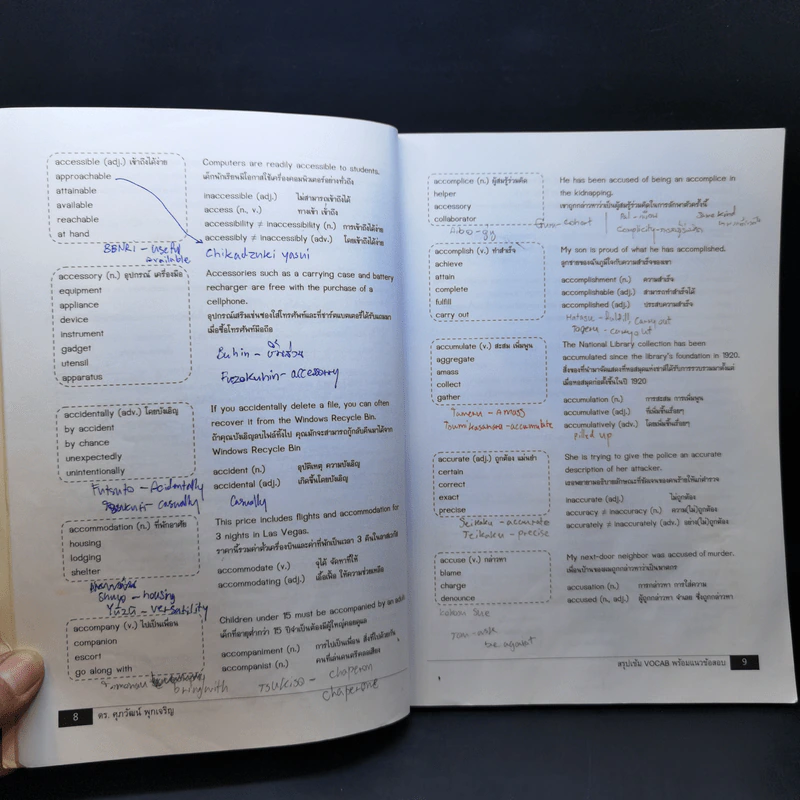 accessible (adj.) เข้าถึงได้ง่าย
approachable
attainable
available
reachable
at hand
BENRI - useful
available
Computers are readily accessible to students.
เด็กนักเรียนมีโอกาสใช้เครื่องคอมพิวเตอร์อย่างทั่วถึง
inaccessible (adj.) ไม่สามารถเข้าถึงได้
access (n., v.) ทางเข้า เข้าถึง
accessibility ≠ inaccessibility (n.) การเข้าถึงได้ง่าย
accessibly ≠ inaccessibly (adv.) โดยเข้าถึงได้ง่าย
Chikadzuki yasui
accessory (n.) อุปกรณ์ เครื่องมือ
equipment
appliance
device
instrument
gadget
utensil
apparatus
Accessories such as a carrying case and battery
recharger are free with the purchase of a
cellphone.
อุปกรณ์เสริมเช่นซองใส่โทรศัพท์และที่ชาร์ตแบตเตอรี่ได้รับแถมมา
เมื่อซื้อโทรศัพท์มือถือ
Buhin -
Fuzokuhin - accessory
accidentally (adv.) โดยบังเอิญ
by accident
by chance
unexpectedly
unintentionally
Futsuto - Acidentally
casually
If you accidentally delete a file, you can often
recover it from the Windows Recycle Bin.
ถ้าคุณบังเอิญลบไฟล์ทิ้งไป คุณมักจะสามารถกู้กลับคืนมาได้จาก
Windows Recycle Bin
accident (n.) อุบัติเหตุ ความบังเอิญ
accidental (adj.) เกิดขึ้นโดยบังเอิญ
Casually
accommodation (n.) ที่พักอาศัย
housing
lodging
shelter
Shuyo - housing
Yūzū - versatility
This price includes flights and accommodation for
3 nights in Las Vegas.
ราคานี้รวมค่าตั๋วเครื่องบินและค่าที่พักเป็นเวลา 3 คืนในลาสเวกัส
accommodate (v.) จุได้ จัดหาที่ให้
accommodating (adj.) เอื้อเฟื้อ ให้ความช่วยเหลือ
accompany (v.) ไปเป็นเพื่อน
companion
escort
go along with
bring with
Children under 15 must be accompanied by an adult.
เด็กที่อายุต่ำกว่า 15 ปีจำเป็นต้องมีผู้ใหญ่คอยดูแล
accompaniment (n.) การไปเป็นเพื่อน สิ่งที่ไปด้วยกัน
accompanist (n.) คนที่เล่นดนตรีคลอเสียง
Tsukiso - chaperon
chaperone
8 ดร. ศุภวัฒน์ พุกเจริญ
accomplice (n.) ผู้สมรู้ร่วมคิด
helper
accessory
collaborator
Aibo - gy
He has been accused of being an accomplice in
the kidnapping.
เขาถูกกล่าวหาว่าเป็นผู้สมรู้ร่วมคิดในการลักพาตัวครั้งนี้
accomplish (v.) ทำสำเร็จ
achieve
attain
complete
fulfill
carry out
My son is proud of what he has accomplished.
ลูกชายของฉันภูมิใจกับความสำเร็จของเขา
accomplishment (n.) ความสำเร็จ
accomplishable (adj.) สามารถทำสำเร็จได้
accomplished (adj.) ประสบความสำเร็จ
Hatasu - fulfill carry out
Togeru - carry out
accumulate (v.) สะสม เพิ่มพูน
aggregate
amass
collect
gather
Tameru - Amass
Tsumikasanaru - accumulate
The National Library collection has been
accumulated since the library's foundation in 1920.
สิ่งของที่นำมาจัดแสดงที่หอสมุดแห่งชาติได้รับการรวบรวมมาตั้งแต่
เมื่อหอสมุดก่อตั้งขึ้นในปี 1920
accumulation (n.) การสะสม การเพิ่มพูน
accumulative (adj.) ที่เพิ่มขึ้นเรื่อยๆ
accumulatively (adv.) โดยเพิ่มขึ้นเรื่อยๆ
pilled up
accurate (adj.) ถูกต้อง แม่นยำ
certain
correct
exact
precise
Seikaku - accurate
Teikaku - precise
She is trying to give the police an accurate
description of her attacker.
inaccurate (adj.) ไม่ถูกต้อง
accuracy ≠ inaccuracy (n.) ความ(ไม่)ถูกต้อง
accurately ≠ inaccurately (adv.) อย่าง(ไม่)ถูกต้อง
accuse (v.) กล่าวหา
blame
charge
denounce
sue
My next-door neighbor was accused of murder.
เพื่อนบ้านของผมถูกกล่าวหาว่าเป็นฆาตกร
accusation (n.) การกล่าวหา การใส่ความ
accused (n., adj.) ผู้ถูกกล่าวหา จำเลย ซึ่งถูกกล่าวหา
สรุปเข้ม VOCAB พร้อมแนวข้อสอบ 9